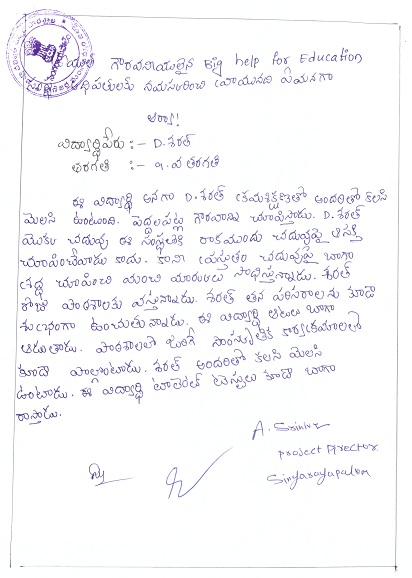 గౌరవనీయులైన Big help for Education
అధిపతులకు నమస్కరించి వ్రాయునది ఏమనగా
ఆర్యా!
విద్యార్థిపేరు :- D. శరత్
తరగతి :- ఇ. వ తరగతి
ఈ విద్యార్థి అనగా D. శరత్ క్రమశిక్షణతో అందరితో కలసి
మెలసి ఉంటుంది. పెద్దలపట్ల గౌరవాన్ని చూపిస్తాడు. D. శరత్
యొక్క చదువు ఈ సంస్థలోకి రాకముందు చదువుపై ఆసక్తి
చూపించేవాడు కాదు. కానీ ప్రస్తుతం చదువుపై బాగా
శ్రద్ధ చూపించి మంచి మార్కులు సాధిస్తున్నాడు. శరత్
రోజు పాఠశాలకు వస్తున్నాడు. శరత్ తన పరిసరాలను కూడా
శుభ్రంగా ఉంచుతున్నాడు. ఈ విద్యార్థి ఆటలు బాగా
ఆడుతాడు. పాఠశాలలో జరిగే సాంస్కృతిక కార్యక్రమాలలో
కూడా పాల్గొంటాడు. శరత్ అందరితో కలసి మెలసి
ఉంటాడు. ఈ విద్యార్థి టాలెంట్ టెస్టులు కూడా బాగా
రాస్తాడు.
A. Srinivs
Project Director
Singarayapalem